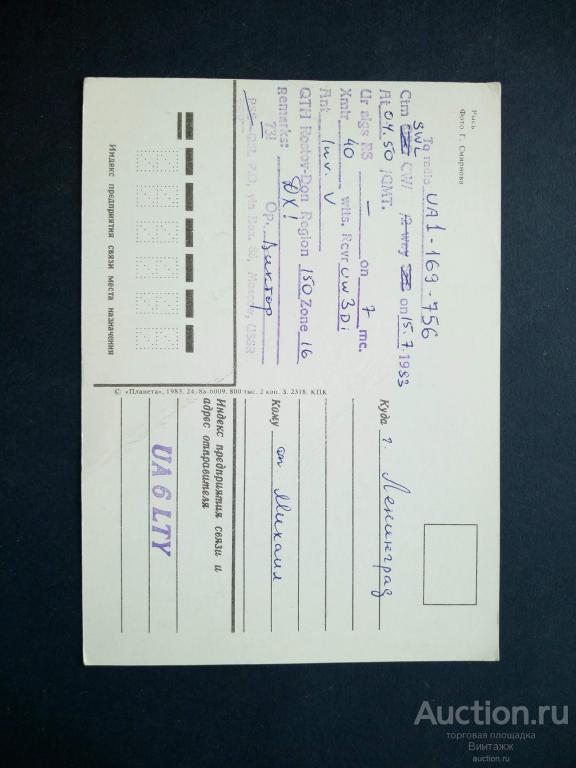 Рысь
Фото Г. Смирнова
To radio UA1-169-756
SWL
Ctm CW/ 2 way on 15.7.1983
At 04.50 /GMT.
Ur sigs RS — on 7 mc.
Xmtr 40 wtts. Rcvr UW3Di
Ant Inv. V
QTH Rostov-Don Region 150 Zone 16
Remarks: DX!
73! Op. Виктор
P.O. Box 88, Moscow, USSR
Индекс предприятия связи места назначения
© «Планета», 1983. 24; 8а-6009. 800 тыс. 2 коп. З. 2318. КПК
Куда г. Ленинград
Кому оп. Михаил
Индекс предприятия связи и
адрес отправителя
UA6LTY
Auction.ru
торговая площадка
Винтажж
auction.ru